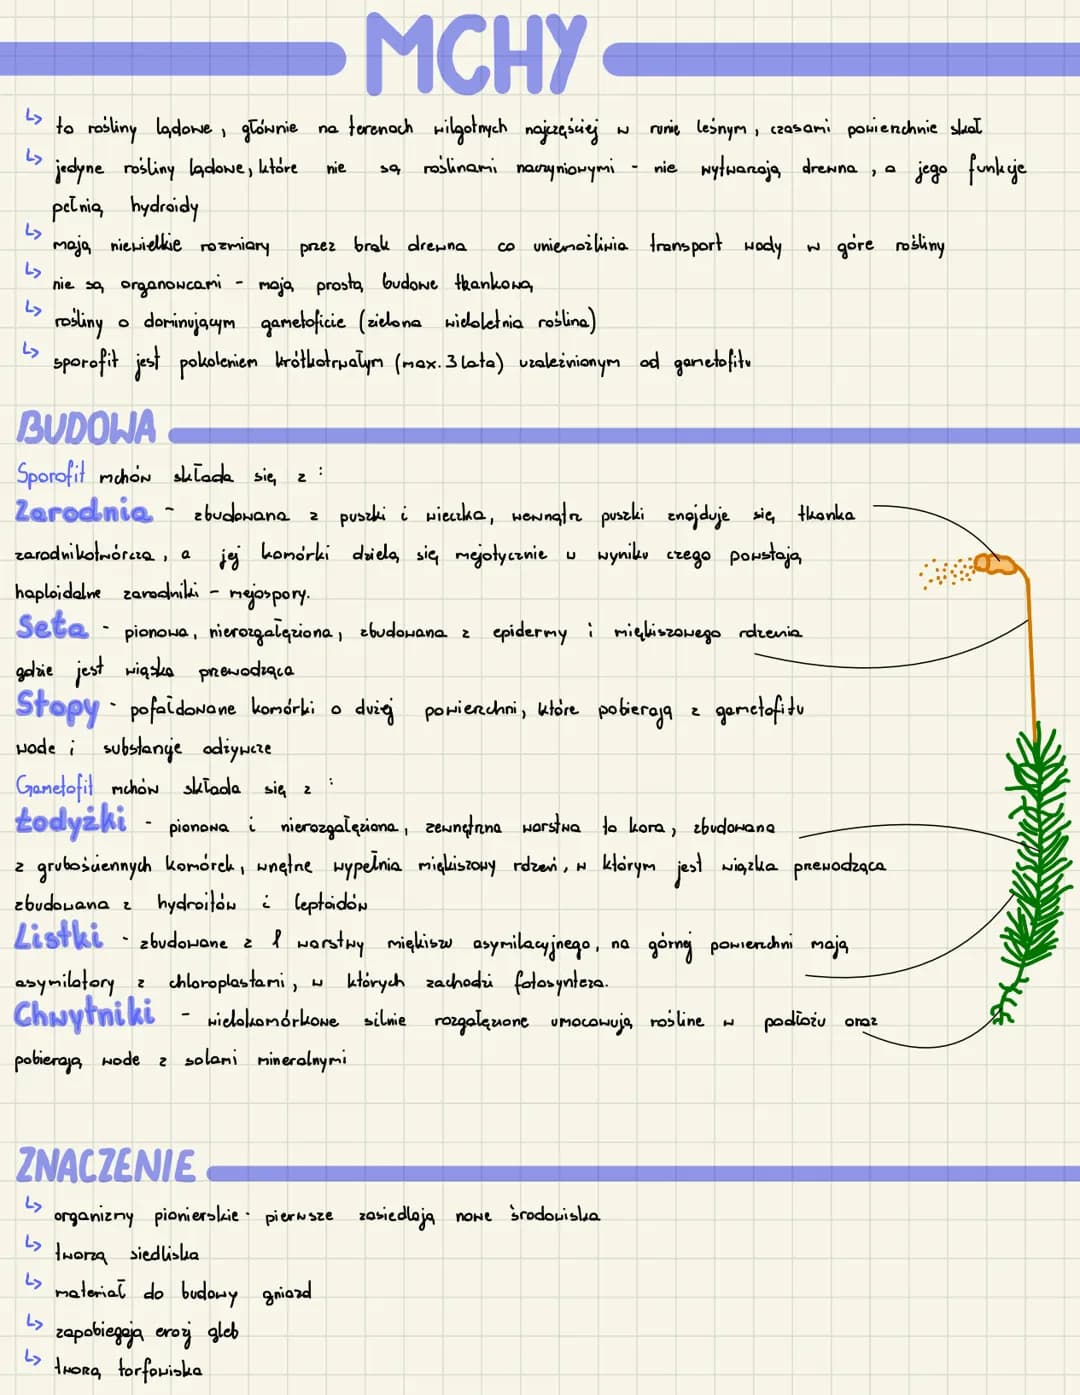 MCHY
↳ to rośliny lądowe, głównie na terenach wilgotnych najczęściej w runie leśnym, czasami powierzchnie skał
↳ jedyne rośliny lądowe, które nie są roślinami naczyniowymi - nie wytwarzają drewna, a jego funkcje
pełnią hydroidy
↳ mają niewielkie rozmiary przez brak drewna co uniemożliwia transport wody w górę rośliny
↳ nie są organowcami - mają prostą budowę tkankową
↳ rośliny o dominującym gametoficie (zielona wieloletnia roślina)
↳ sporofit jest pokoleniem krótkotrwałym (max. 3 lata) uzależnionym od gametofitu
BUDOWA
Sporofit mchów składa się z :
Zarodnia - zbudowana z puszki i wieczka, wewnątrz puszki znajduje się tkanka
zarodnikotwórcza, a jej komórki dzielą się mejotycznie w wyniku czego powstają
haploidalne zarodniki - mejospory.
Seta - pionowa, nierozgałęziona, zbudowana z epidermy i miękiszowego rdzenia
gdzie jest wiązka przewodząca
Stopy - pofałdowane komórki o dużej powierzchni, które pobierają z gametofitu
wodę i substancje odżywcze
Gametofit mchów składa się z :
Łodyżki - pionowa i nierozgałęziona, zewnętrzna warstwa to kora, zbudowana
z grubościennych komórek, wnętrze wypełnia miękiszowy rdzeń, w którym jest wiązka przewodząca
zbudowana z hydroitów i leptoidów
Listki - zbudowane z 1 warstwy miękiszu asymilacyjnego, na górnej powierzchni mają
asymilatory z chloroplastami, w których zachodzi fotosynteza.
Chwytniki - wielokomórkowe silnie rozgałęzione umocowują roślinę w podłożu oraz
pobierają wodę z solami mineralnymi
ZNACZENIE
↳ organizmy pionierskie - pierwsze zasiedlają nowe środowiska
↳ tworzą siedliska
↳ materiał do budowy gniazd
↳ zapobiegają erozj gleb
↳ tworą torfowiska